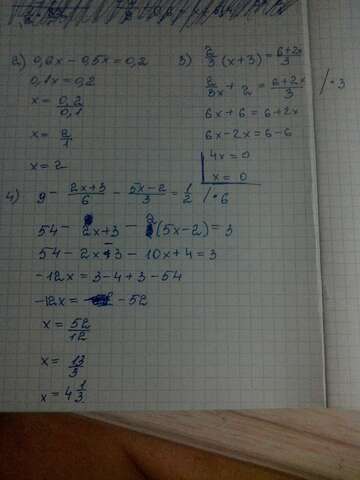 2) 0,6x - 0,5x = 0,2
0,1x = 0,2
x = 0,2/0,1
x = 2/1
x = 2
3) 2/3 (x+3) = 6+2x/3
2/3x + 2 = 6+2x/3 / · 3
6x + 6 = 6 + 2x
6x - 2x = 6 - 6
4x = 0
x = 0
4) 9 - 2x+3/6 - 5x-2/3 = 1/2 / · 6
54 - 2x+3 - 2(5x-2) = 3
54 - 2x - 3 - 10x + 4 = 3
-12x = 3 - 4 + 3 - 54
-12x = - 52
x = 52/12
x = 13/3
x = 4 1/3